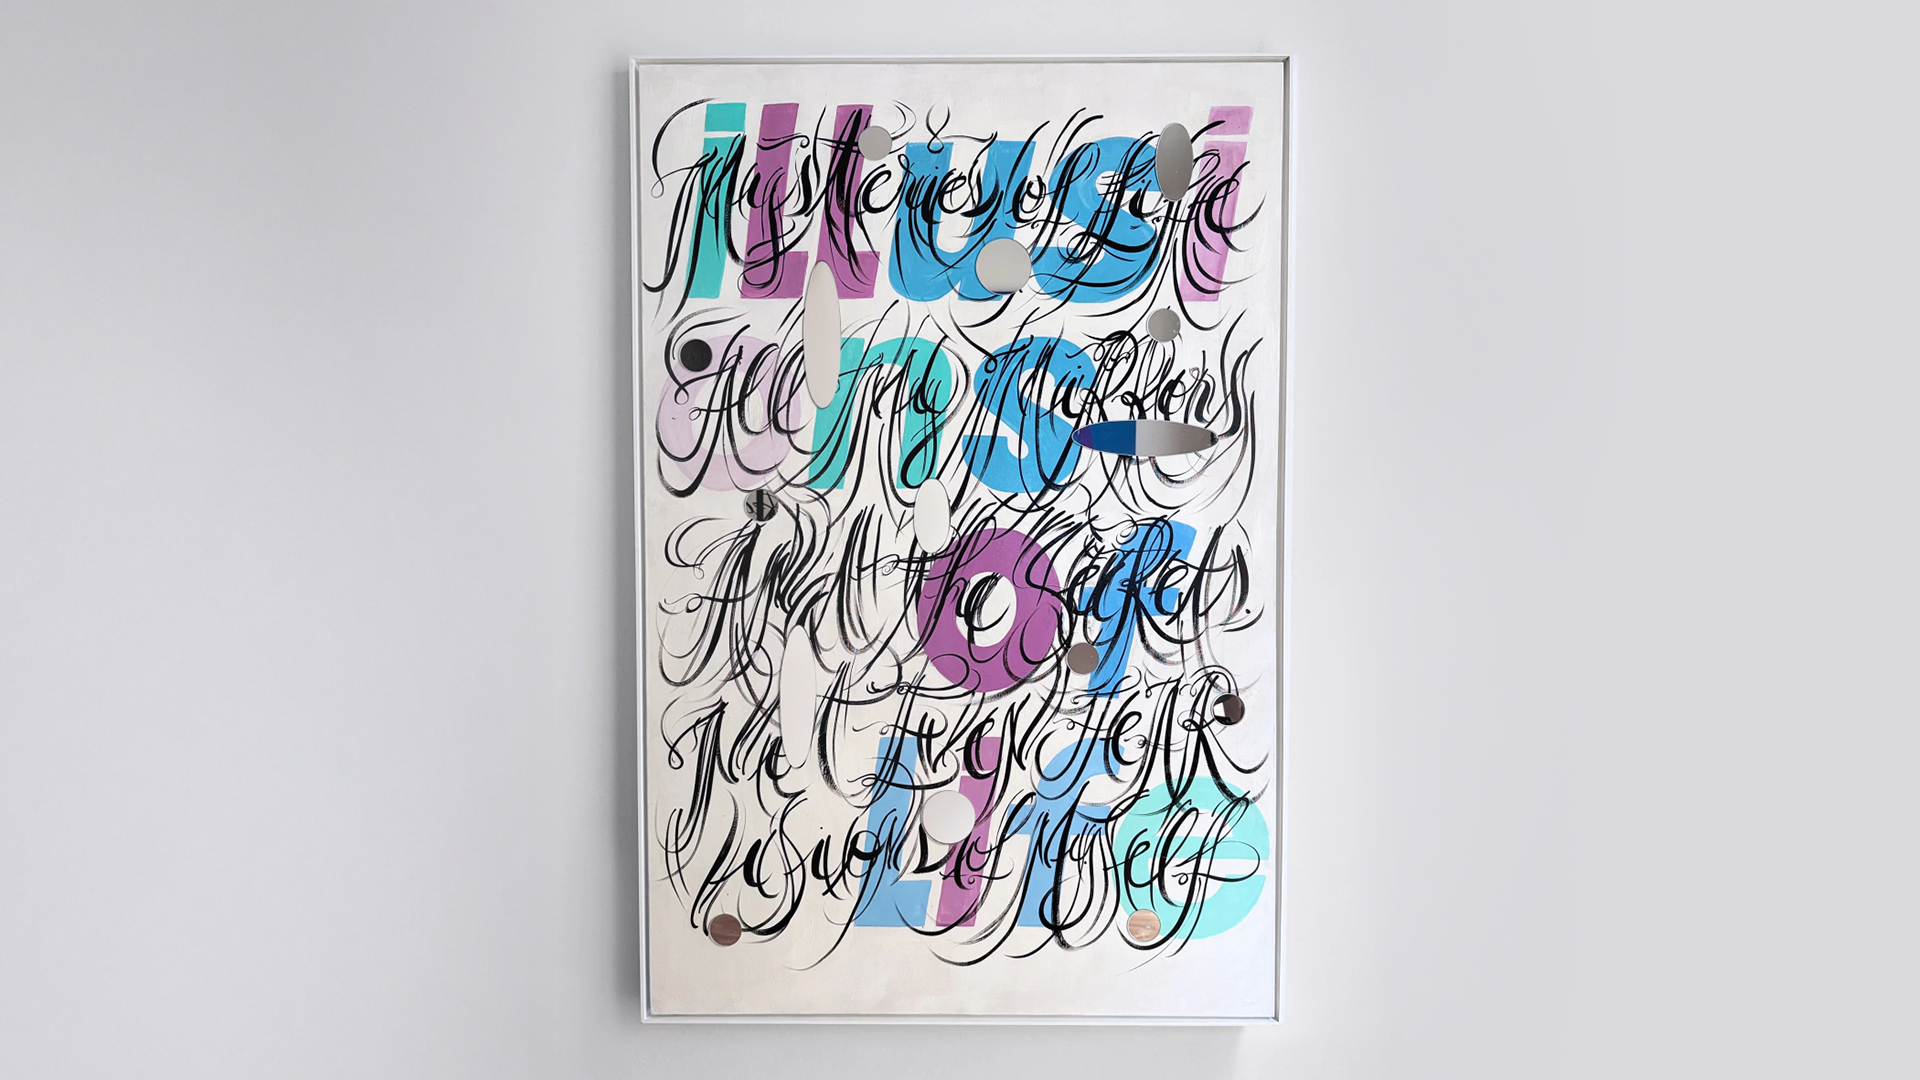 iLLusi
Mysteries of Life
ons
All My Mirrors
of
And the Secrets.
Even FEAR
Life
of Myself